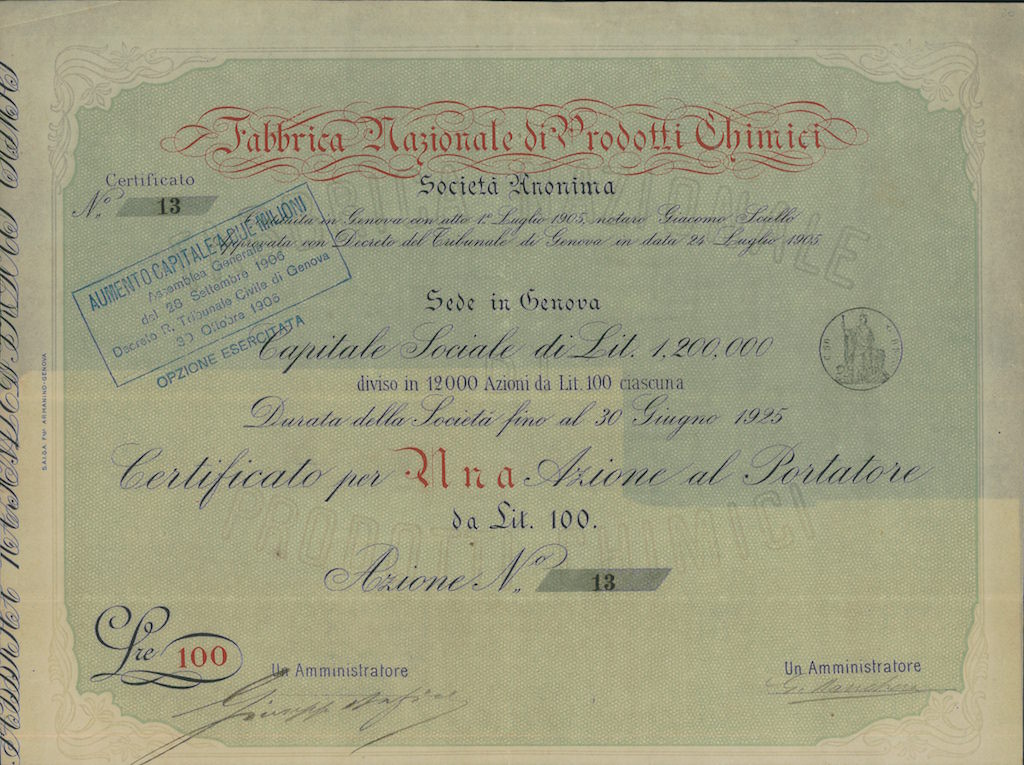 Fabbrica Nazionale di Prodotti Chimici
Società Anonima
Certificato
N.º 13
Costituita in Genova con atto 1º Luglio 1905, notaro Giacomo Sciello
Approvata con Decreto del Tribunale di Genova in data 24 Luglio 1905
AUMENTO CAPITALE A DUE MILIONI
Assemblea Generale
del 28 Settembre 1906
Decreto R. Tribunale Civile di Genova
30 Ottobre 1906
OPZIONE ESERCITATA
Sede in Genova
Capitale Sociale di Lit. 1.200.000
diviso in 12000 Azioni da Lit. 100 ciascuna
Durata della Società fino al 30 Giugno 1925
Certificato per Una Azione al Portatore
da Lit. 100.
Azione N.º 13
PRODOTTI CHIMICI
Lre 100
Un Amministratore
Un Amministratore
S.A.I.G.A. FLLI ARMANINO-GENOVA